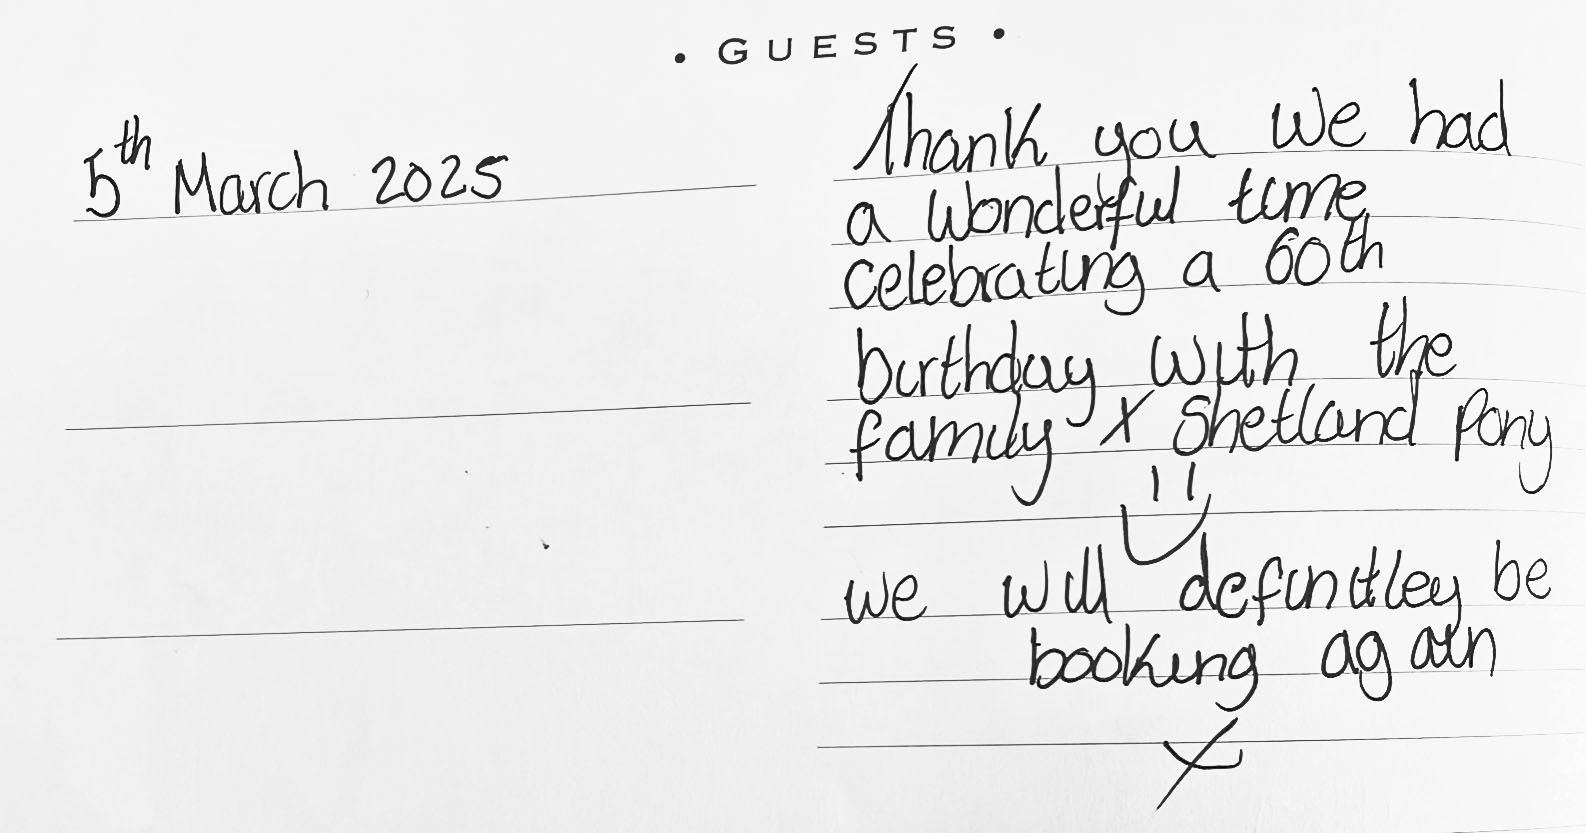 • GUESTS •
5th March 2025
Thank you we had
a wonderful time
celebrating a 60th
birthday with the
family x Shetland Pony
we will definitley be
booking again
x